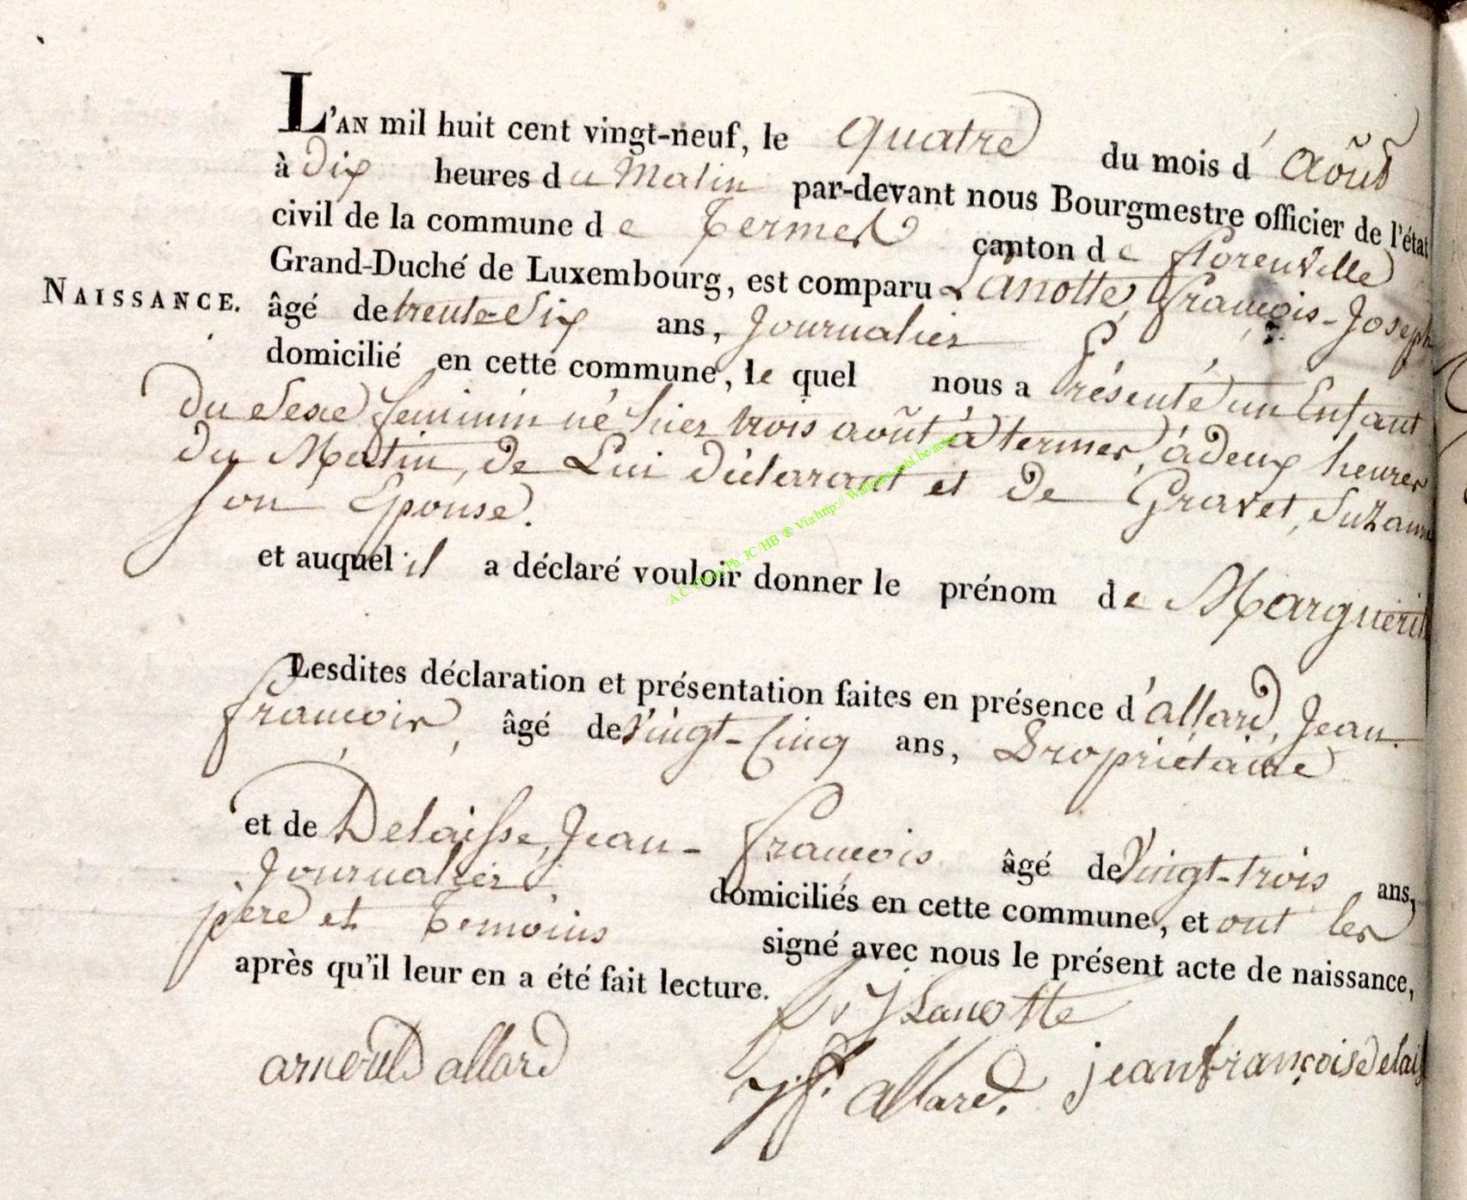 L'AN mil huit cent vingt-neuf, le quatre du mois d'Août
à dix heures du Matin par-devant nous Bourgmestre officier de l'état
civil de la commune de Termes canton de florenville
Grand-Duché de Luxembourg, est comparu Lanotte, françois-Joseph
NAISSANCE.
âgé de trente-Six ans, Journalier
domicilié en cette commune, le quel nous a Présenté un Enfant
du Sexe feminin né hier trois août à termes, à deux heures
du Matin, de Lui déclarant et de Gravet, Suzanne
son Epouse.
et auquel il a déclaré vouloir donner le prénom de Marguerit
Lesdites déclaration et présentation faites en présence d'allard, Jean-
françois, âgé de Vingt-Cinq ans, Propriétaire
et de Delaisse, Jean-françois âgé de Vingt-trois ans,
Journalier domiciliés en cette commune, et ont les
père et Temoins signé avec nous le présent acte de naissance,
après qu'il leur en a été fait lecture.
f J Lanotte
arnould allard
J f. allard.
jeanfrançoisdelais